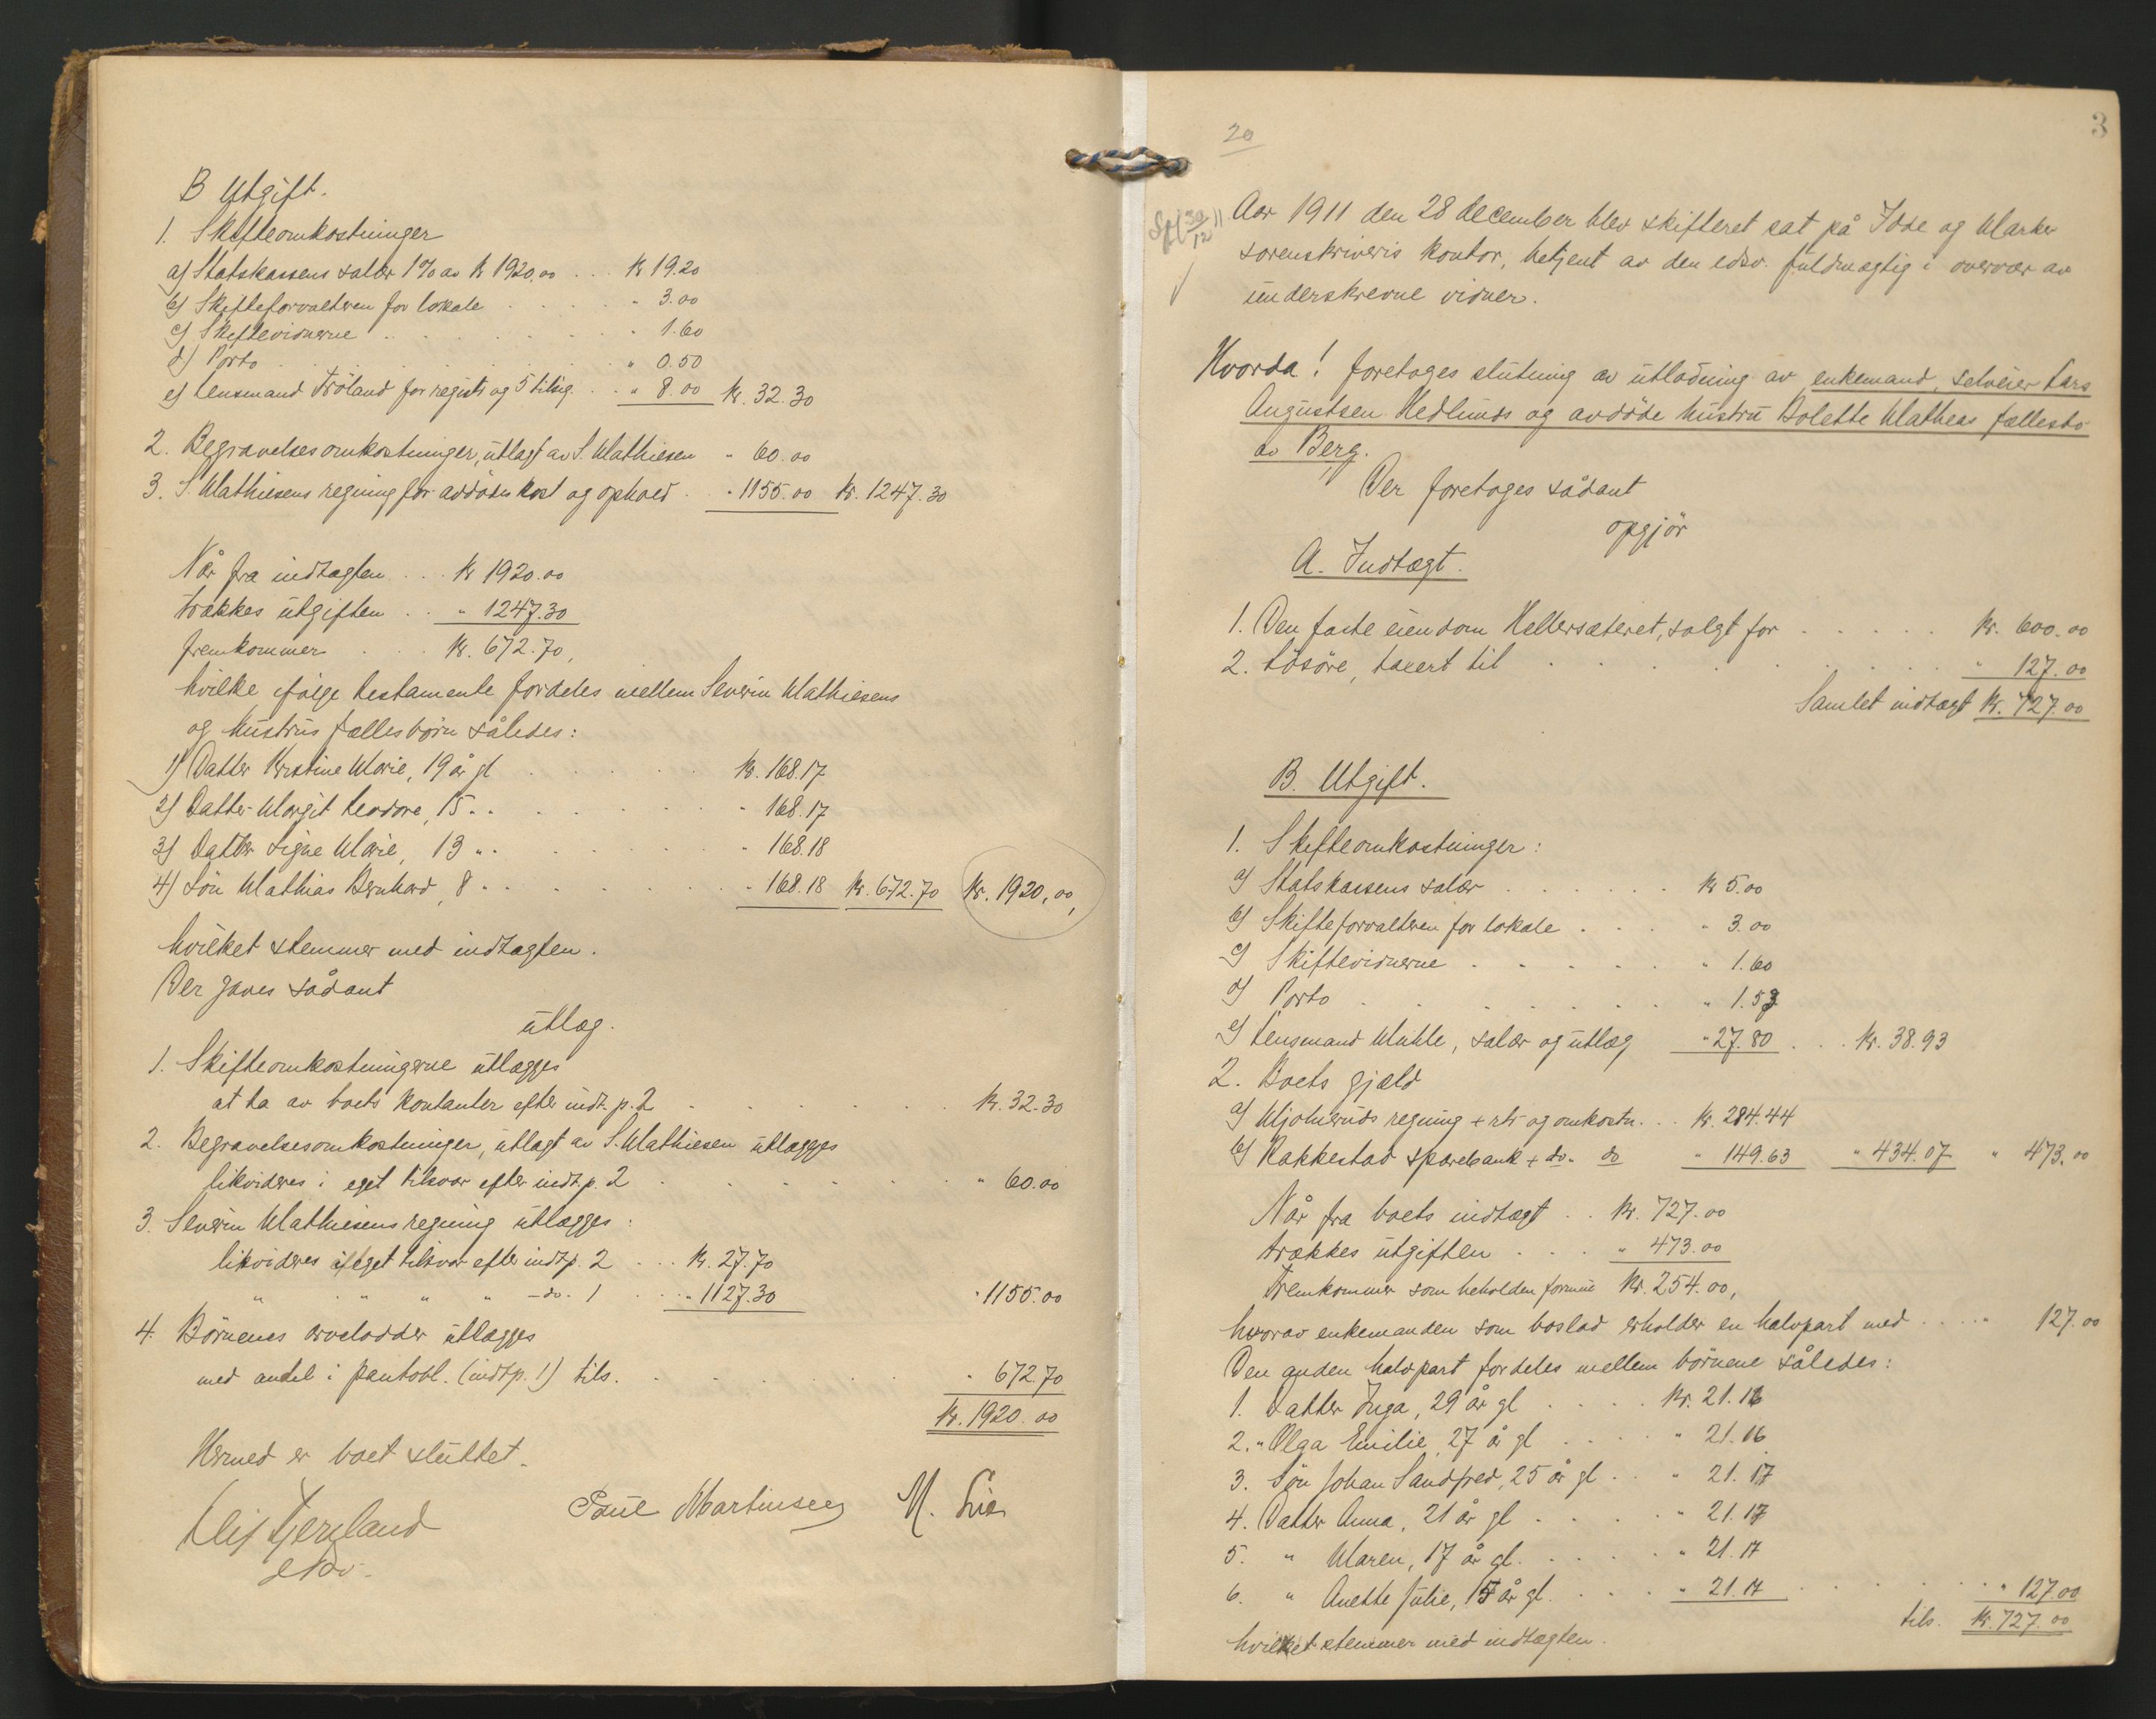 B Utgift.
1. Skifteomkostninger
a) Statskassens salær 1% av kr 1920,00 . . . kr 19.20
b) Skifteforvalteren for lokale . . . . . " 3.00
c) Skiftevidnerne . . . . . . " 1.60
d) Porto . . . . . . . " 0.50
e) Lensmand Tröland for registr og 5 tilsig. . . " 8.00 kr. 32.30
2. Begravelsesomkostninger, utlagt av S. Mathiesen " 60.00
3. S. Mathiesens regning for avdødes kost og ophold . . " 1155.00 kr. 1247.30
Når fra indtægten . . . kr 1920.00
trækkes utgiften . . " 1247.30
fremkommer . . . kr. 672.70,
hvilke ifølge testamente fordeles mellem Severin Mathiesens
og hustrus fællesbørn således:
1) Datter Kristine Marie, 19 år gl . . . . . . kr. 168.17
2) Datter Margit Leodore, 15 " " . . . . . " 168.17
3) Datter Signe Marie, 13 " " . . . . . " 168.18
4) Søn Mathias Bernhard, 8 " " . . . . . . " 168.18 kr. 672.70 kr. 1920,00,
hvilket stemmer med indtægten.
Der gaves sådant
utlæg.
1. Skifteomkostningerne utlægges
at ta av boets kontanter efter indt. p. 2 . . . . . . kr. 32.30
2. Begravelsesomkostninger, utlagt av S. Mathiesen utlægges
likvideres i eget tilsvar efter indt. p. 2 . . . . . . " 60.00
3. Severin Mathiesens regning utlægges:
likvideres i eget tilsvar efter indt. p. 2 . . . kr. 27.70
" " " " -do- 1 . . . " 1127.30 " 1155.00
4. Børnenes arvelodder utlægges
med andel i pantobl. (indt. p. 1) tils. . . . . . . " 672.70
kr. 1920.00
Hermed er boet sluttet.
Paul Martinsen M. Lie
edsv.
3
20
30/12 11
Aar 1911 den 28 december blev skifteret sat på Idde og Marker
sorenskriveris kontor, betjent av den edsv. fuldmægtig i overvær av
underskrevne vidner.
Hvorda! foretoges slutning av utlodning av enkemand, selveier Lars
Augustsen Hedlunds og avdøde hustru Bolette Matheas fællesbo
av Berg.
Der foretoges sådant
opgjör
A. Indtægt.
1. Den faste eiendom Hellersæteret, solgt for . . . . . kr. 600.00
2. Løsøre, taxert til . . . . . . . . . " 127.00
Samlet indtægt kr. 727.00
B. Utgift.
1. Skifteomkostninger:
a) Statskassens salær . . . . . . kr 5.00
b) Skifteforvalteren for lokale . . . . " 3.00
c) Skiftevidnerne . . . . . " 1.60
d) Porto . . . . . . . " 1.53
e) Lensmand Muhle, salær og utlæg " 27.80 . . . kr. 38.93
2. Boets gjæld
a) Mjølneruds regning + rtr og omkostn. . . kr. 284.44
b) Rakkestad sparebank + do - do " 149.63 " 434.07 " 473.00
Når fra boets indtægt . . kr. 727.00
trækkes utgiften . . . " 473.00
Fremkommer som beholden formue kr. 254.00,
hvorav enkemanden som boslod erholder en halvpart med . . . . " 127.00
Den anden halvpart fordeles mellem börnene således:
1. Datter Inga, 29 år gl . . . . kr. 21.16
2. " Olga Emilie, 27 år gl . . . . " 21.16
3. Søn Johan Sandfred, 25 år gl . . " 21.17
4. Datter Anna, 21 år gl . . . . . " 21.17
5. " Maren, 17 år gl. . . . . " 21.17
6. " Anette Julie, 15 år gl. . . . " 21.17 . . . . . " 127.00
tils. kr. 727.00
hvilket stemmer med indtægten.